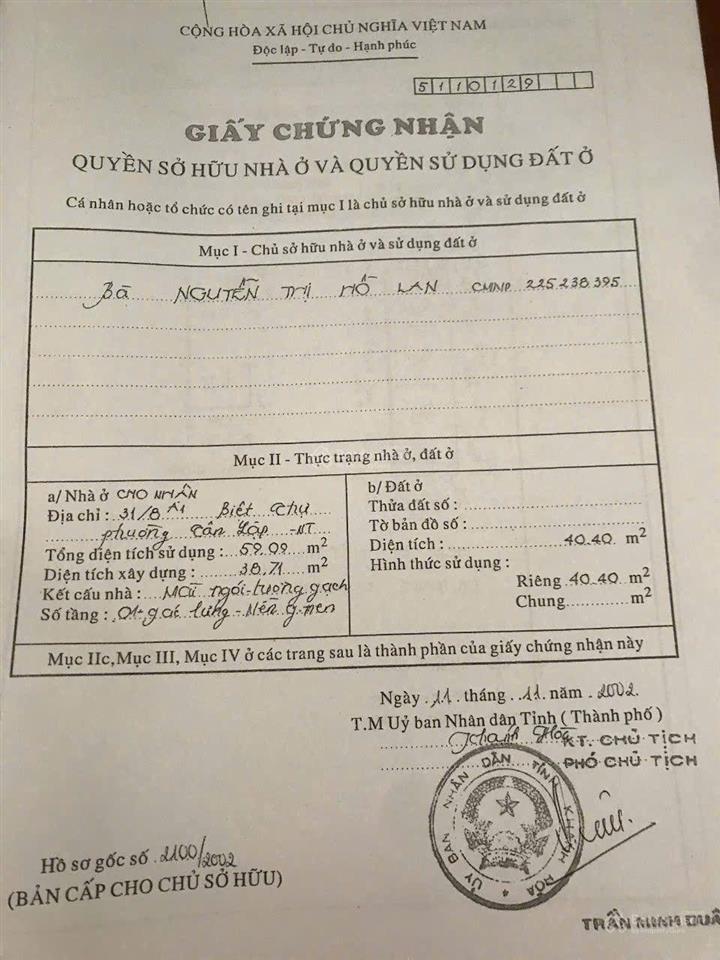 CỘNG HÒA XÃ HỘI CHỦ NGHĨA VIỆT NAM
Độc lập - Tự do - Hạnh phúc
5110129
GIẤY CHỨNG NHẬN
QUYỀN SỞ HỮU NHÀ Ở VÀ QUYỀN SỬ DỤNG ĐẤT Ở
Cá nhân hoặc tổ chức có tên ghi tại mục I là chủ sở hữu nhà ở và sử dụng đất ở
Mục I - Chủ sở hữu nhà ở và sử dụng đất ở
Bà NGUYỄN THỊ HỐ LAN CMND 225.238.395
Mục II - Thực trạng nhà ở, đất ở
a/ Nhà ở CHO NHÂN
Địa chỉ : 31/8 Biệt thự
phường Tân Lập - NT
Tổng diện tích sử dụng : 59.09 m²
Diện tích xây dựng : 38,71 m²
Kết cấu nhà : Mái ngói - tường gạch
Số tầng : 01 + gác lửng - Nền g.men
b/ Đất ở
Thửa đất số :
Tờ bản đồ số :
Diện tích : 40.40 m²
Hình thức sử dụng :
Riêng 40.40 m²
Chung m²
Mục IIc, Mục III, Mục IV ở các trang sau là thành phần của giấy chứng nhận này
Ngày 11 tháng 11 năm 2002.
T.M Uỷ ban Nhân dân Tỉnh ( Thành phố )
Khánh Hòa
KT. CHỦ TỊCH
PHÓ CHỦ TỊCH
ỦY BAN NHÂN DÂN TỈNH KHÁNH HÒA
Hồ sơ gốc số 2100/2002
(BẢN CẤP CHO CHỦ SỞ HỮU)
TRẦN MINH DUÂ